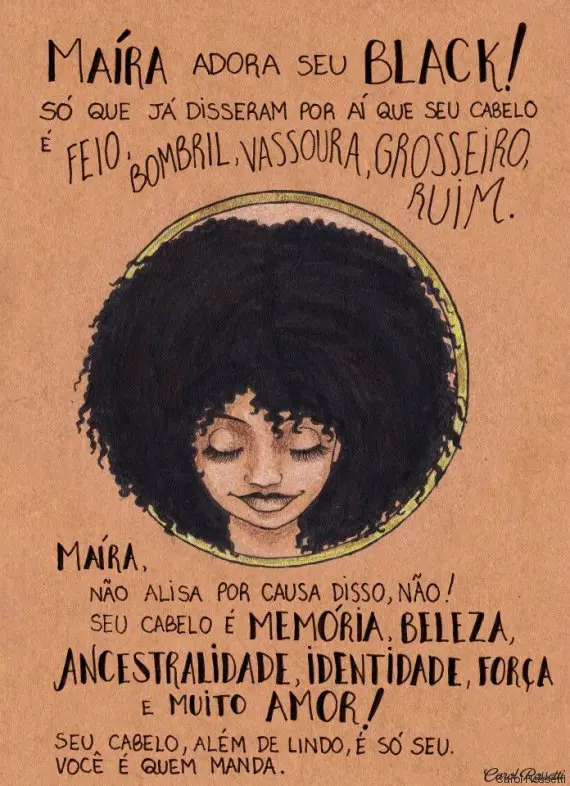 MAÍRA ADORA SEU BLACK!
SÓ QUE JÁ DISSERAM POR AÍ QUE SEU CABELO
É FEIO, BOMBRIL, VASSOURA, GROSSEIRO,
RUIM.
MAÍRA,
NÃO ALISA POR CAUSA DISSO, NÃO!
SEU CABELO É MEMÓRIA, BELEZA,
ANCESTRALIDADE, IDENTIDADE, FORÇA
E MUITO AMOR!
SEU CABELO, ALÉM DE LINDO, É SÓ SEU.
VOCÊ É QUEM MANDA.
Carol Rossetti
Carol Rossetti